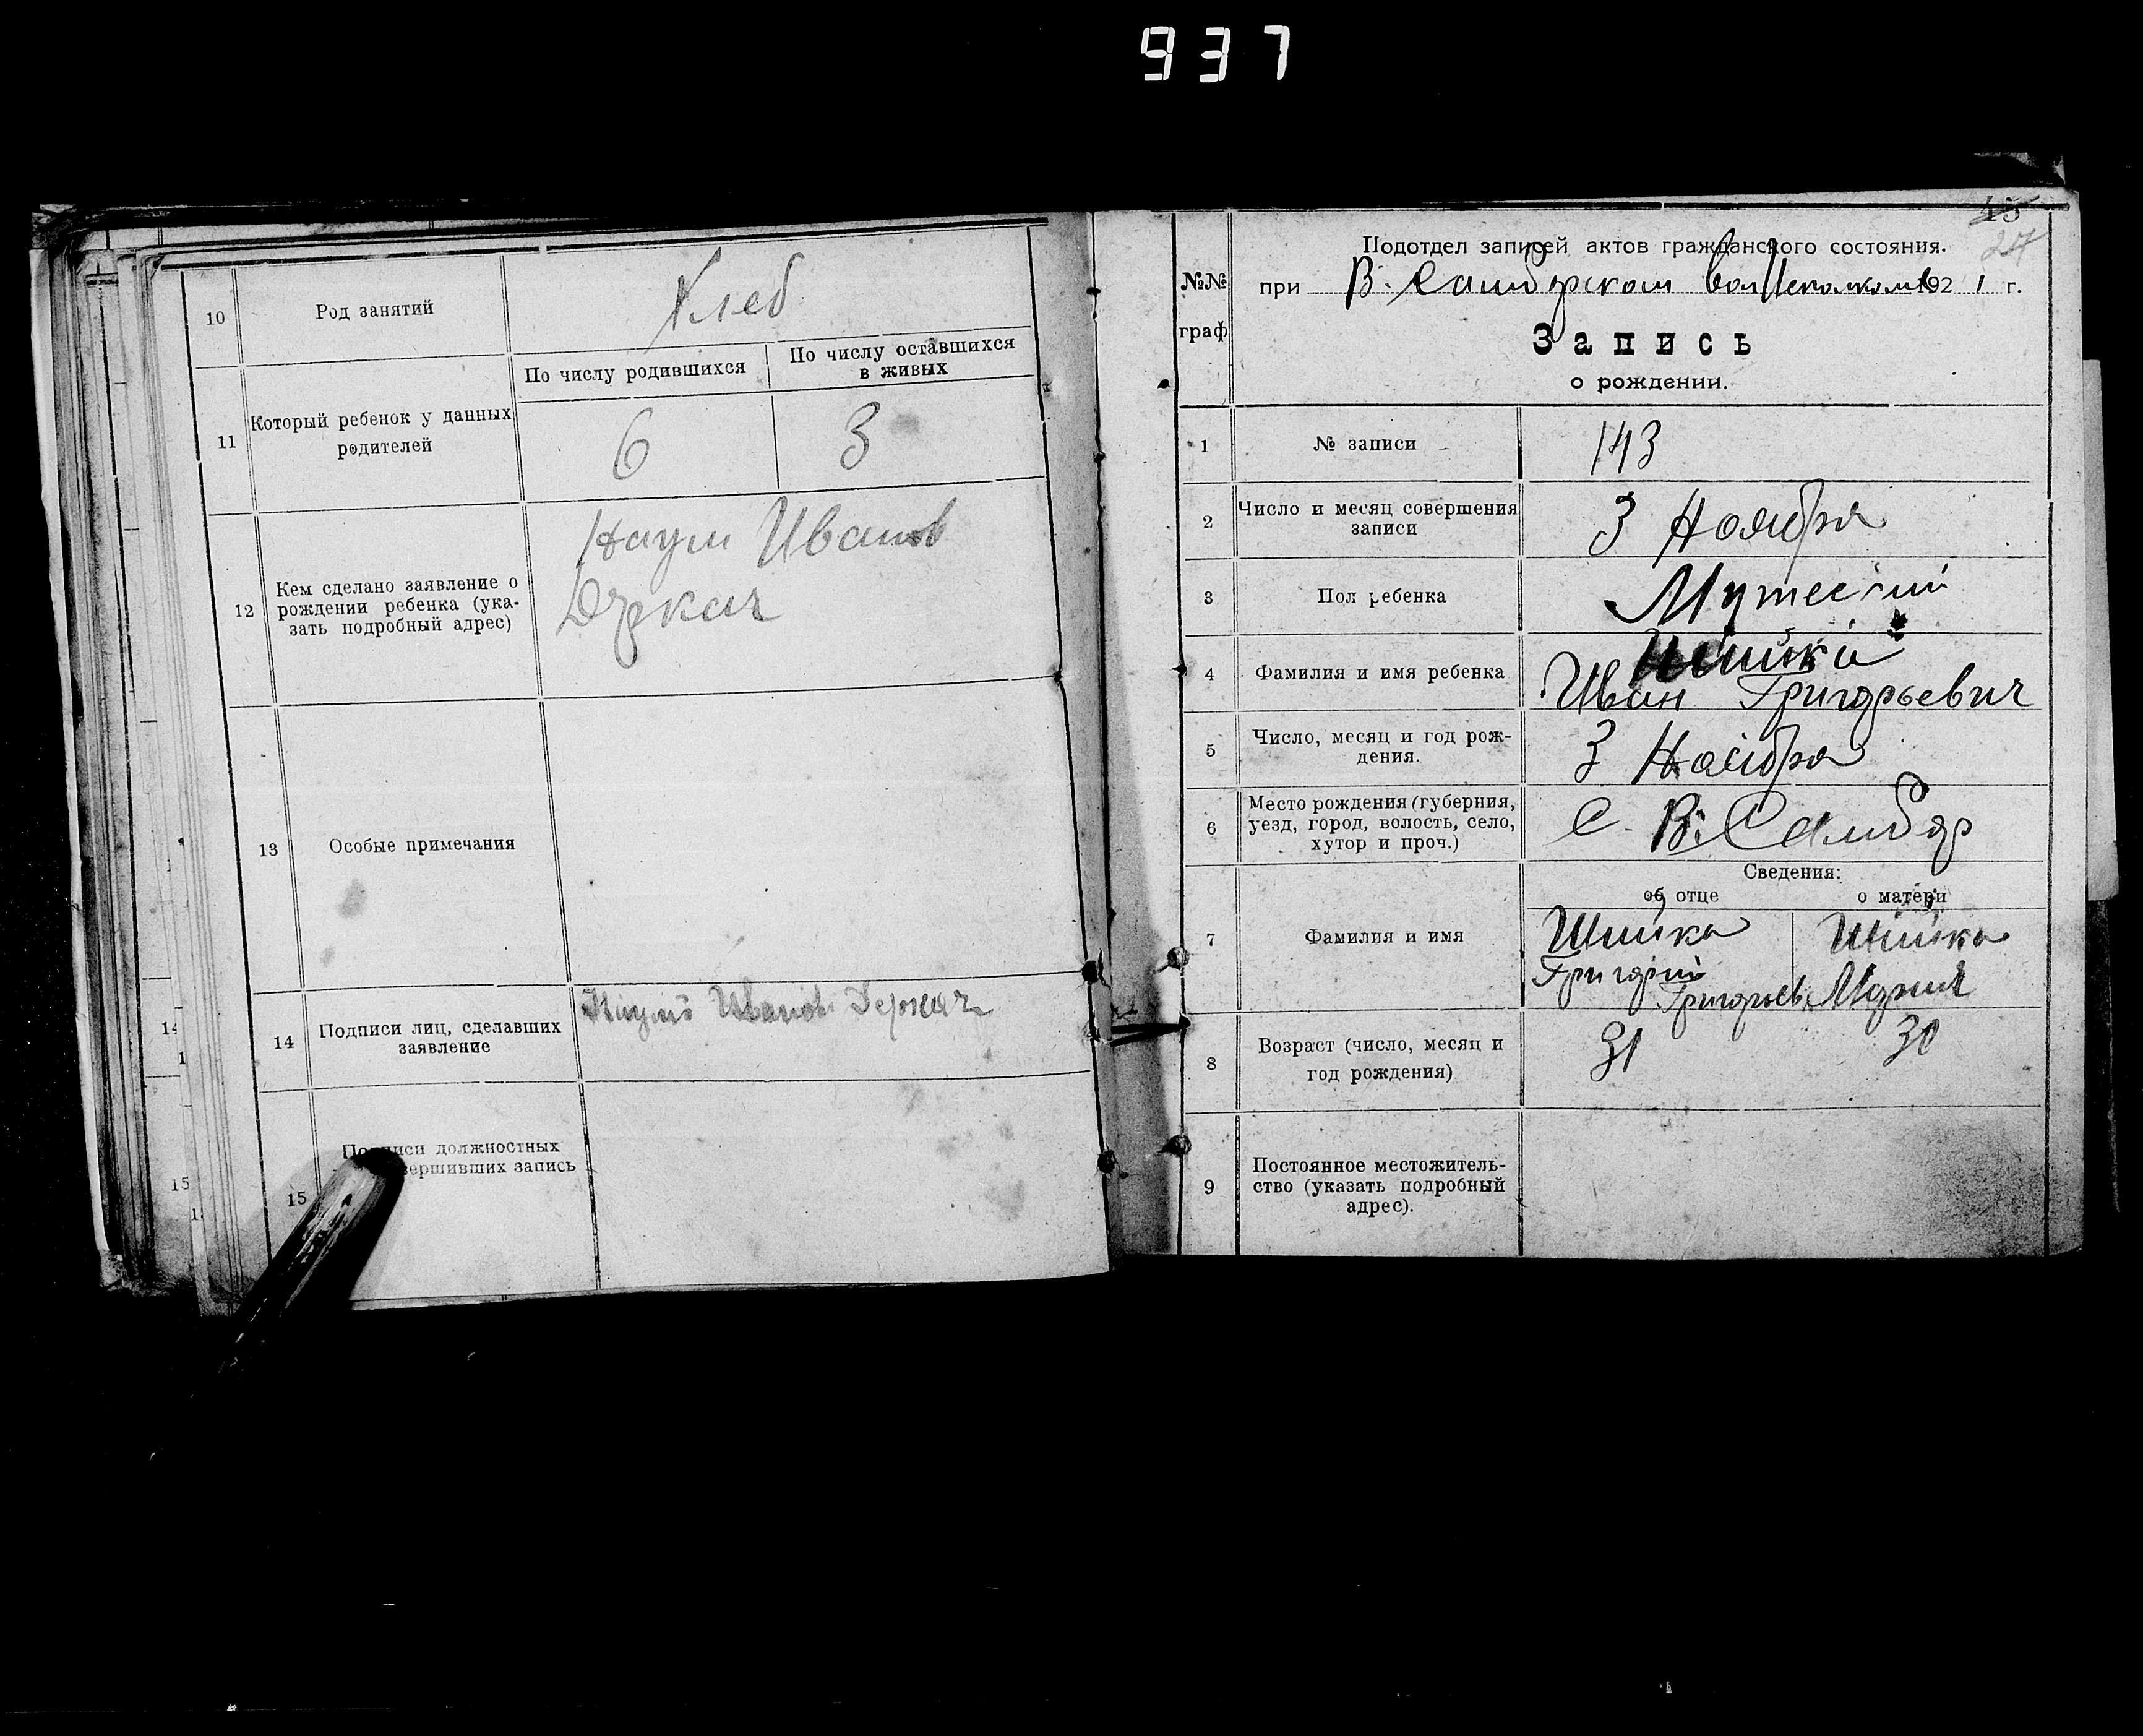 937
10
Род занятий
Хлеб
11
Который ребенок у данных
родителей
По числу родившихся
По числу оставшихся
в живых
6
3
12
Кем сделано заявление о
рождении ребенка (ука-
зать подробный адрес)
Наум Иванов
Держач
13
Особые примечания
14
Подписи лиц, сделавших
заявление
Наумъ Иванов Держач
15
Подписи должностных
вершивших запись
14
15
45
217
№№
граф
Подотдел записей актов гражданского состояния.
при В. Самборском волИсполкоме 1921 г.
Запись
о рождении.
1
№ записи
143
2
Число и месяц совершения
записи
3 Ноября
3
Пол ребенка
Мужеский
4
Фамилия и имя ребенка
Шийка
Иван Григорьевич
5
Число, месяц и год рож-
дения.
3 Ноября
6
Место рождения (губерния,
уезд, город, волость, село,
хутор и проч.)
С. В. Самбор
Сведения:
об отце
о матери
7
Фамилия и имя
Шийка
Григорий
Григорьев
Шийка
Мария
8
Возраст (число, месяц и
год рождения)
31
30
9
Постоянное местожитель-
ство (указать подробный
адрес).